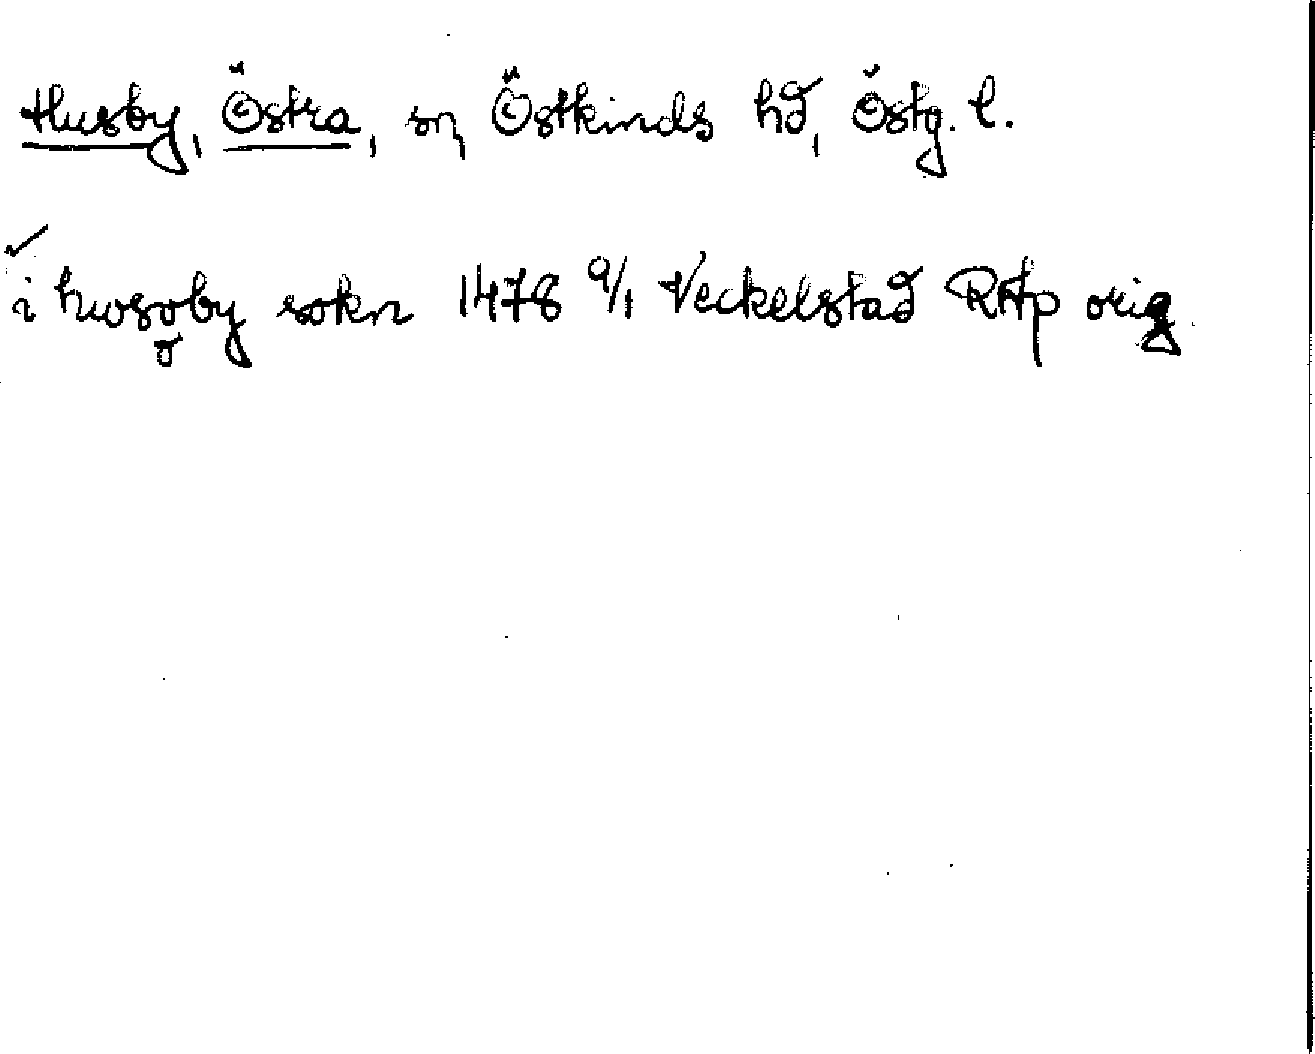 Husby, Östra, sn, Östkinds hd, Östg. l.
✓
i hwsoby sokn 1478 9/1 Veckelstad RAp orig